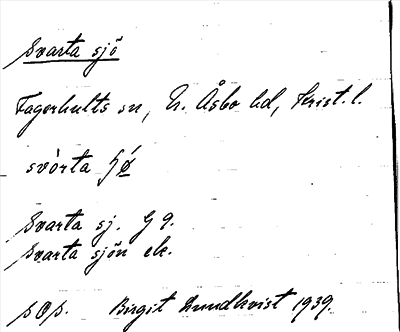 Svarta sjö
Fagerhults sn, N. Åsbo hd, Krist. l.
svòrta ʃø
Svarta sj. G 9.
Svarta sjön ek.
sOs. Birgit Lundkvist 1939.